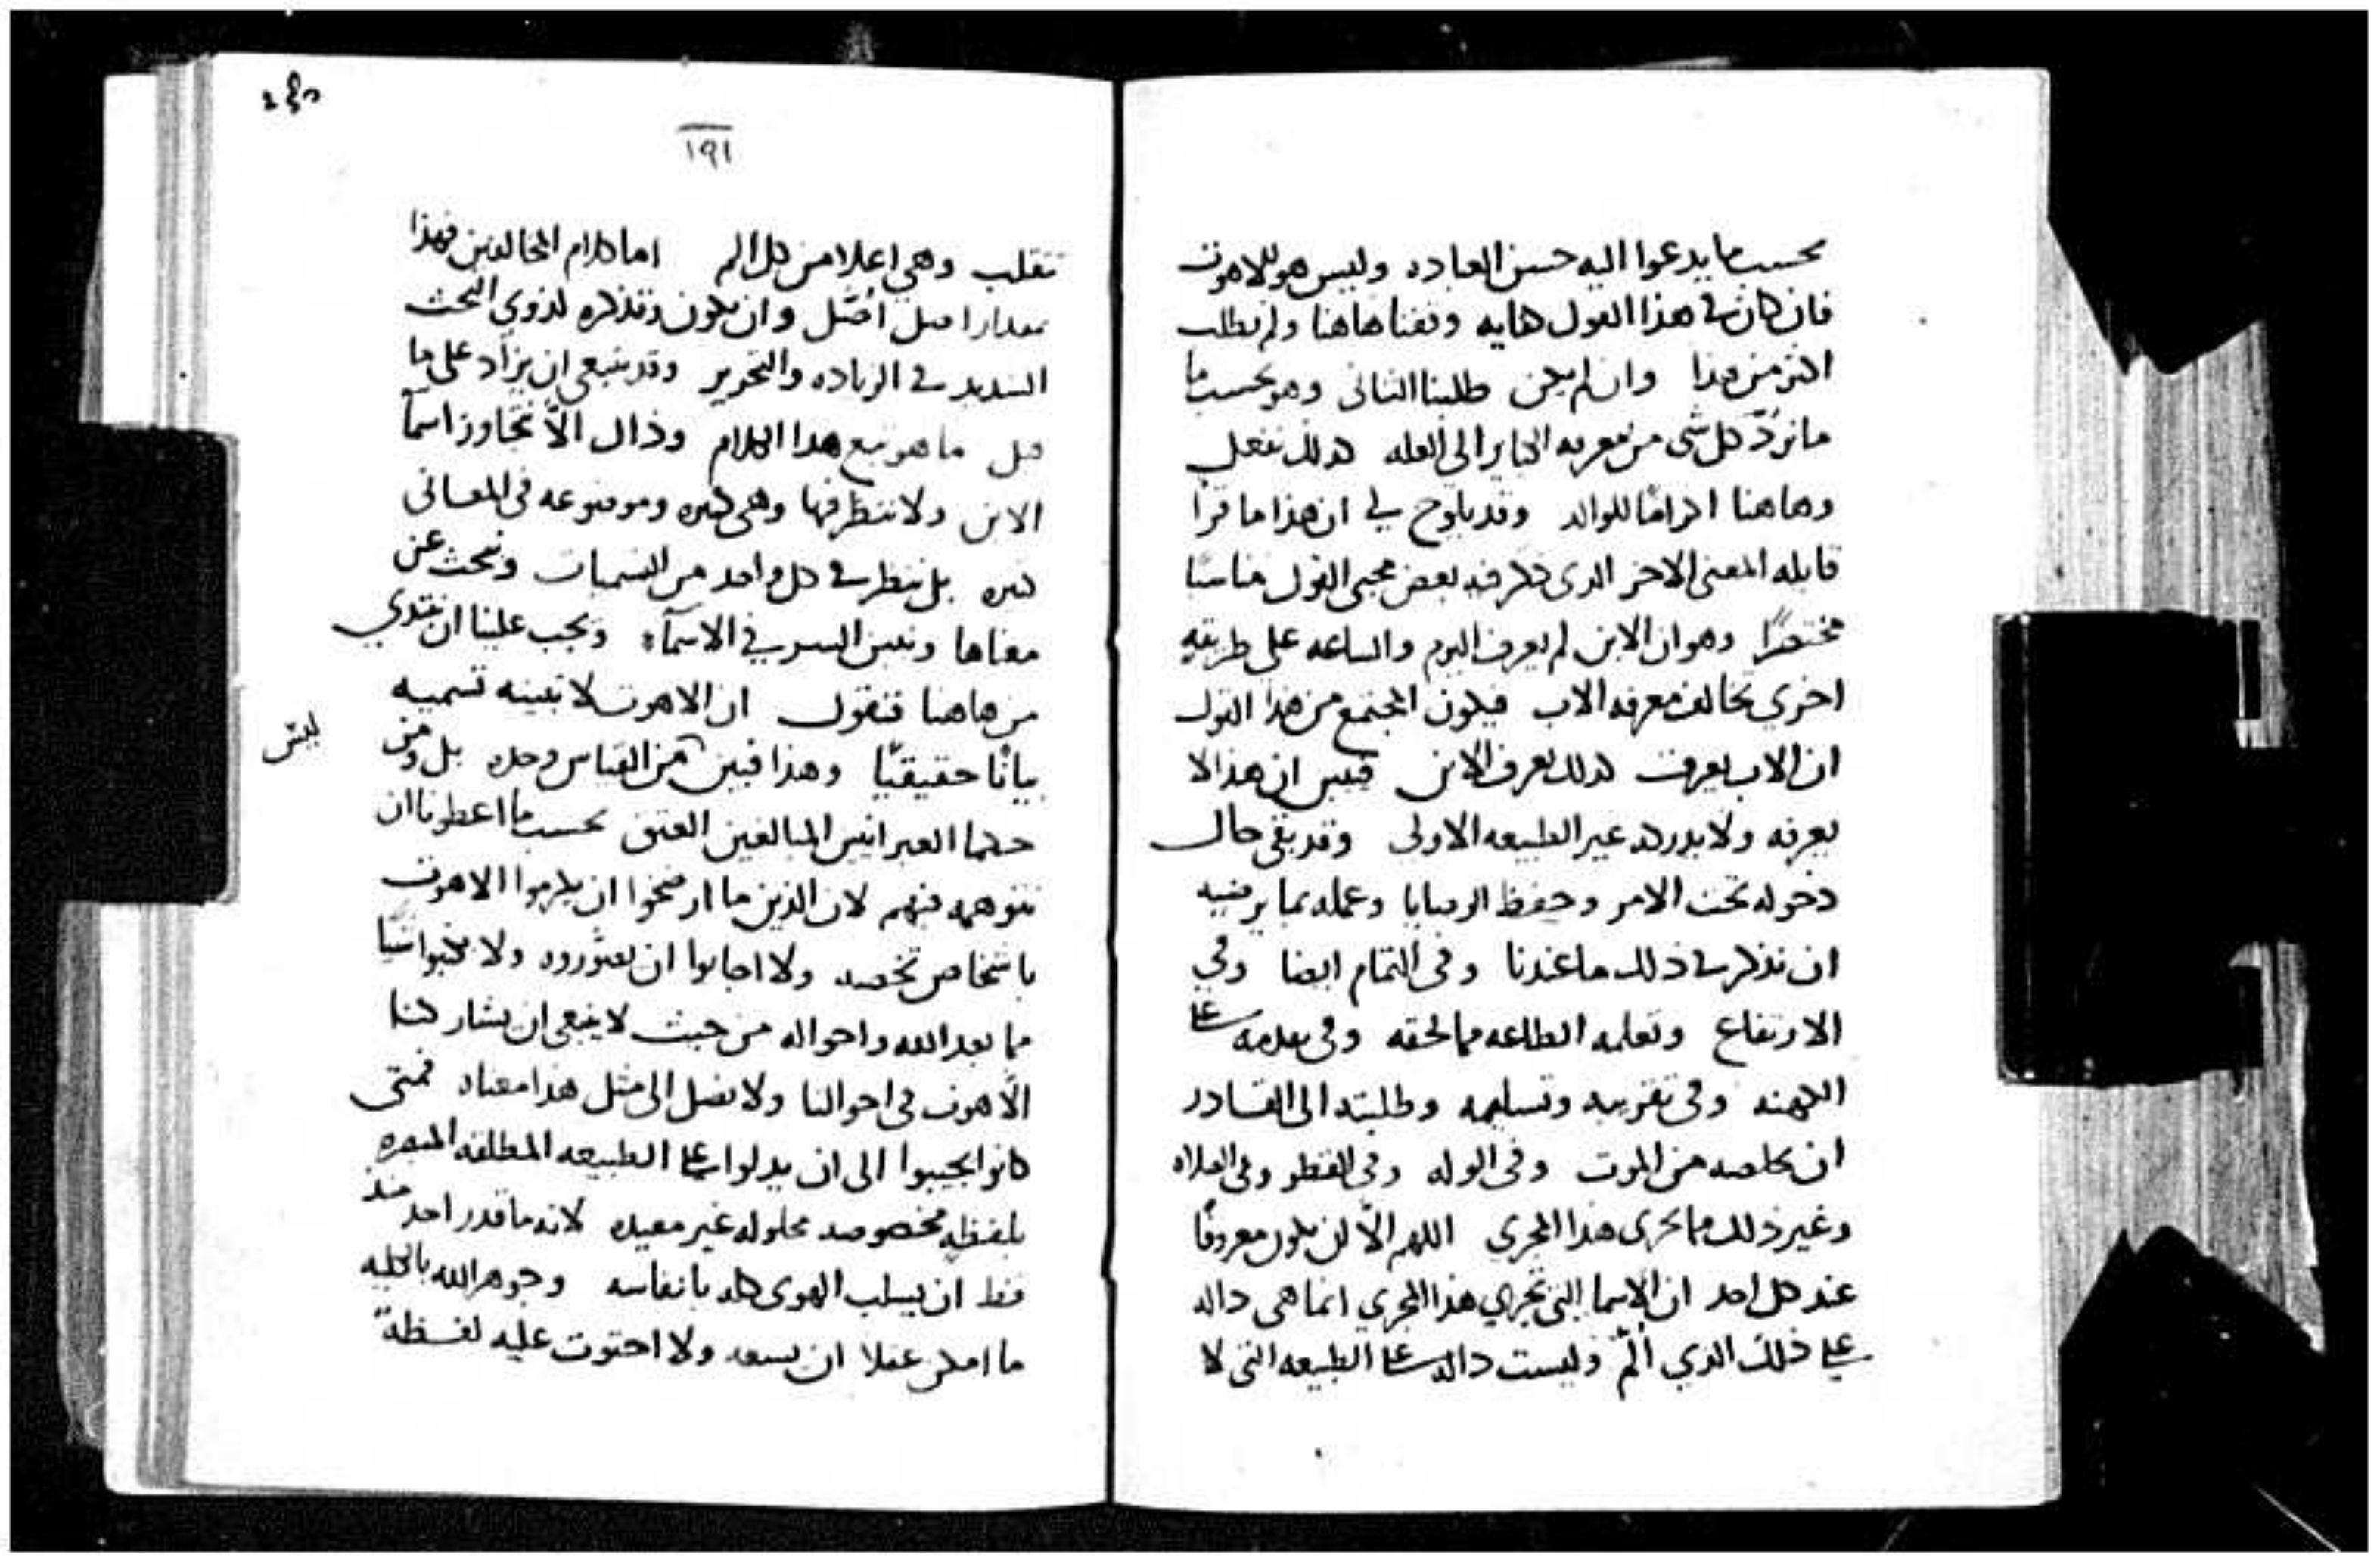 بحسب ما يدعوا اليه حسن العباده وليس هو للاهوت
فان كان في هذا القول كفايه وقفنا هاهنا ولم نطلب
اكثر من هذا وان لم يكن طلبنا الثاني وهو بحسب ما
ما نردّ كل شي من معرفه الى العله كذلك نفعل
وهاهنا اكرامًا للوالد وقد يلوح لي ان هذا ما قرا
قابله المعنى الاخر الذى فكر فيه بعض محبى القول
مختصرًا وهو ان الابن لم يعرف اليوم والساعه على طريقه
اخرى تخالف معرفه الاب فيكون المجتمع من هذا القول
ان الاب يعرف كذلك يعرف الابن فبين ان هذا لا
يعرفه ولا يدركه غير الطبيعه الاولى وقد بقى حال
دخوله تحت الامر وحفظ الوصايا وعمله بما يرضيه
ان نذكر في ذلك ما عندنا وفى التمام ايضا وفي
الارتفاع وتعلمه الطاعه مما لحقه وفى تقدمه على
الكهنه وفى تقريبه وتسليمه وطلبته الى القادر
ان يخلصه من الموت وفى الوله وفى القطر وفى الصلاه
وغير ذلك مما يجرى هذا المجرى اللهم الّا ان يكون معروفًا
عند كل احد ان الاسما التى تجري هذا المجري انما هى داله
على ذلك الذي ألّم وليست داله على الطبيعه التى لا
١٩١
تنقلب وهي اعلا من كل الم اما كلام المخالفين فهذا
مقدارا اصل وان يكون وتذكره لذوي البحث
الشديد في الزياده والتحرير وقد ينبغى ان يزاد على ما
قيل ما هو تبع هذا الكلام وذاك الّا نتجاوز اسمآ
الابن ولا ننظر فيها وهى كثيره وموضوعه فى المعانى
كثيره بل ننظر في كل واحد من التسميات ونبحث عن
معناها ونبين السر في الاسمآء ويجب علينا ان نبتدي
من هاهنا فنقول ان الاهوت لا تبينه تسميه
بيانًا حقيقيًّا وهذا فبين ليس من القياس وحده بل ومن
حكما العبرانيين المبالغين العتق بحسب ما اعطونا ان
نتوهمه فيهم لان الذين ما ارتضوا ان يكرموا الاهوت
باشخاص تخصه ولا اجابوا ان يصوروه ولا كتبوا شيًا
مما بعد الله واحواله من حيث لا ينبغى ان يشاركنا
الّاهوت فى احوالنا ولا نصل الى مثل هذا معناه فمتى
كانوا يجيبوا الى ان يدلوا على الطبيعه المطلقه
بلفظه مخصوصه محلوله غير مقيده لانه ما قدر احد منذ
قط ان يسلب الهوى كله بانفاسه وجوهر الله بالكليه
ما امكن عقلا ان يسعه ولا احتوت عليه لفظةً